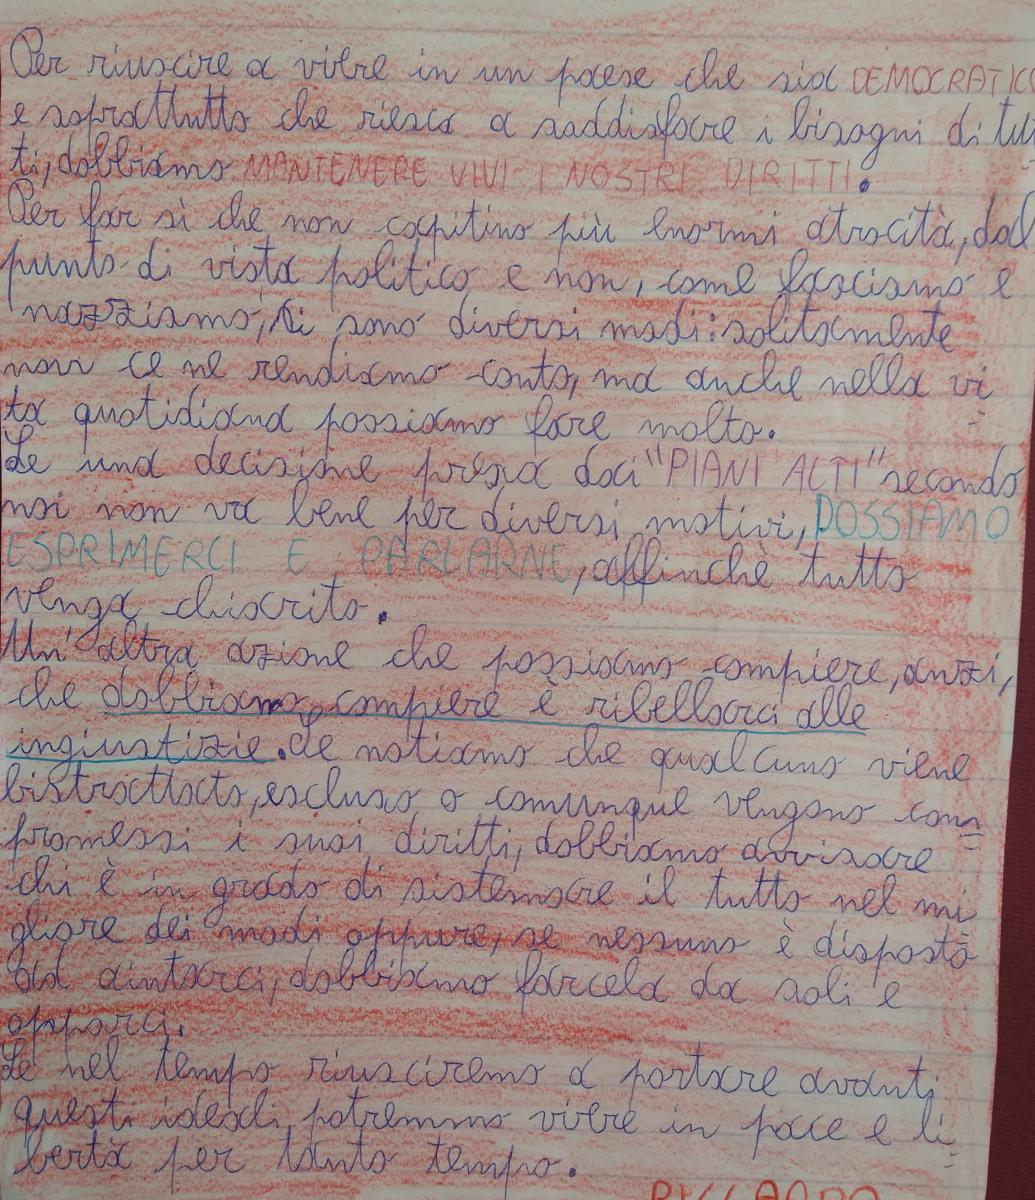 Per riuscire a vivere in un paese che sia DEMOCRATICO
e soprattutto che riesca a saddisfare i bisogni di tut
ti, dobbiamo MANTENERE VIVI I NOSTRI DIRITTI.
Per far sì che non capitino più enormi atrocità, dal
punto di vista politico e non, come fascismo e
nazzismo, ci sono diversi modi: solitamente
non ce ne rendiamo conto, ma anche nella vi
ta quotidiana possiamo fare molto.
Se una decisione presa dai "PIANI ALTI" secondo
noi non va bene per diversi motivi, POSSIAMO
ESPRIMERCI E PARLARNE, affinchè tutto
venga chiarito.
Un'altra azione che possiamo compiere, anzi,
che dobbiamo compiere è ribellarci alle
ingiustizie. Se notiamo che qualcuno viene
bistrattato, escluso o comunque vengono com=
promessi i suoi diritti, dobbiamo avvisare
chi è in grado di sistemare il tutto nel mi
gliore dei modi oppure, se nessuno è disposto
ad aiutarci, dobbiamo farcela da soli e
opporci.
Se nel tempo riusciremo a portare avanti
questi ideali, potremmo vivere in pace e li=
bertà per tanto tempo.
RICCARDO